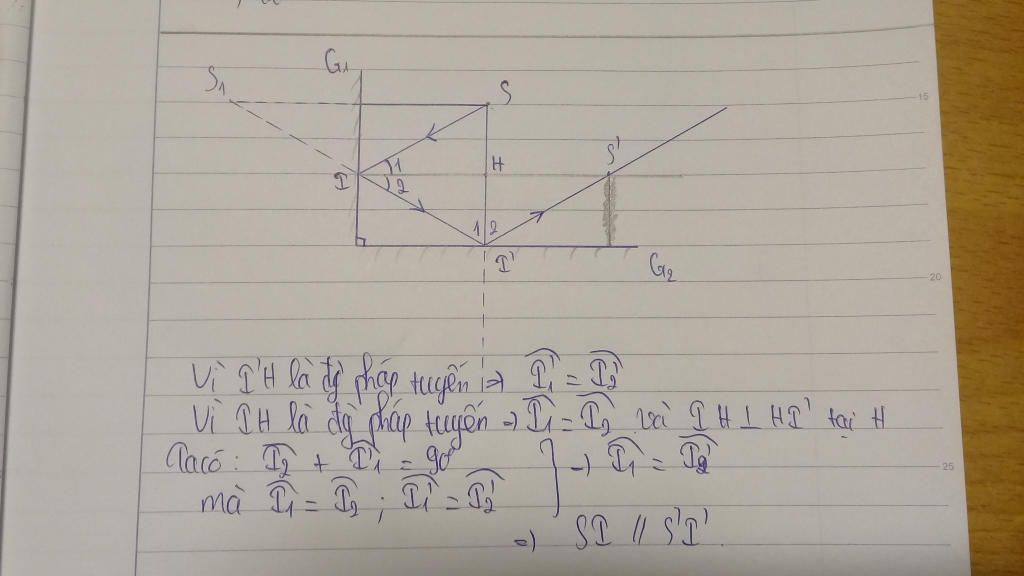 G1
S1
S
15
1
H
S'
I
2
1 2
I'
G2
20
Vì I'H là đg pháp tuyến => I'1 = I'2
Vì IH là đg pháp tuyến => I1 = I2 và IH ⊥ HI' tại H
Ta có: I2 + I'1 = 90°
-> I1 = I'2
25
mà I1 = I2 ; I'1 = I'2
=> SI // S'I'